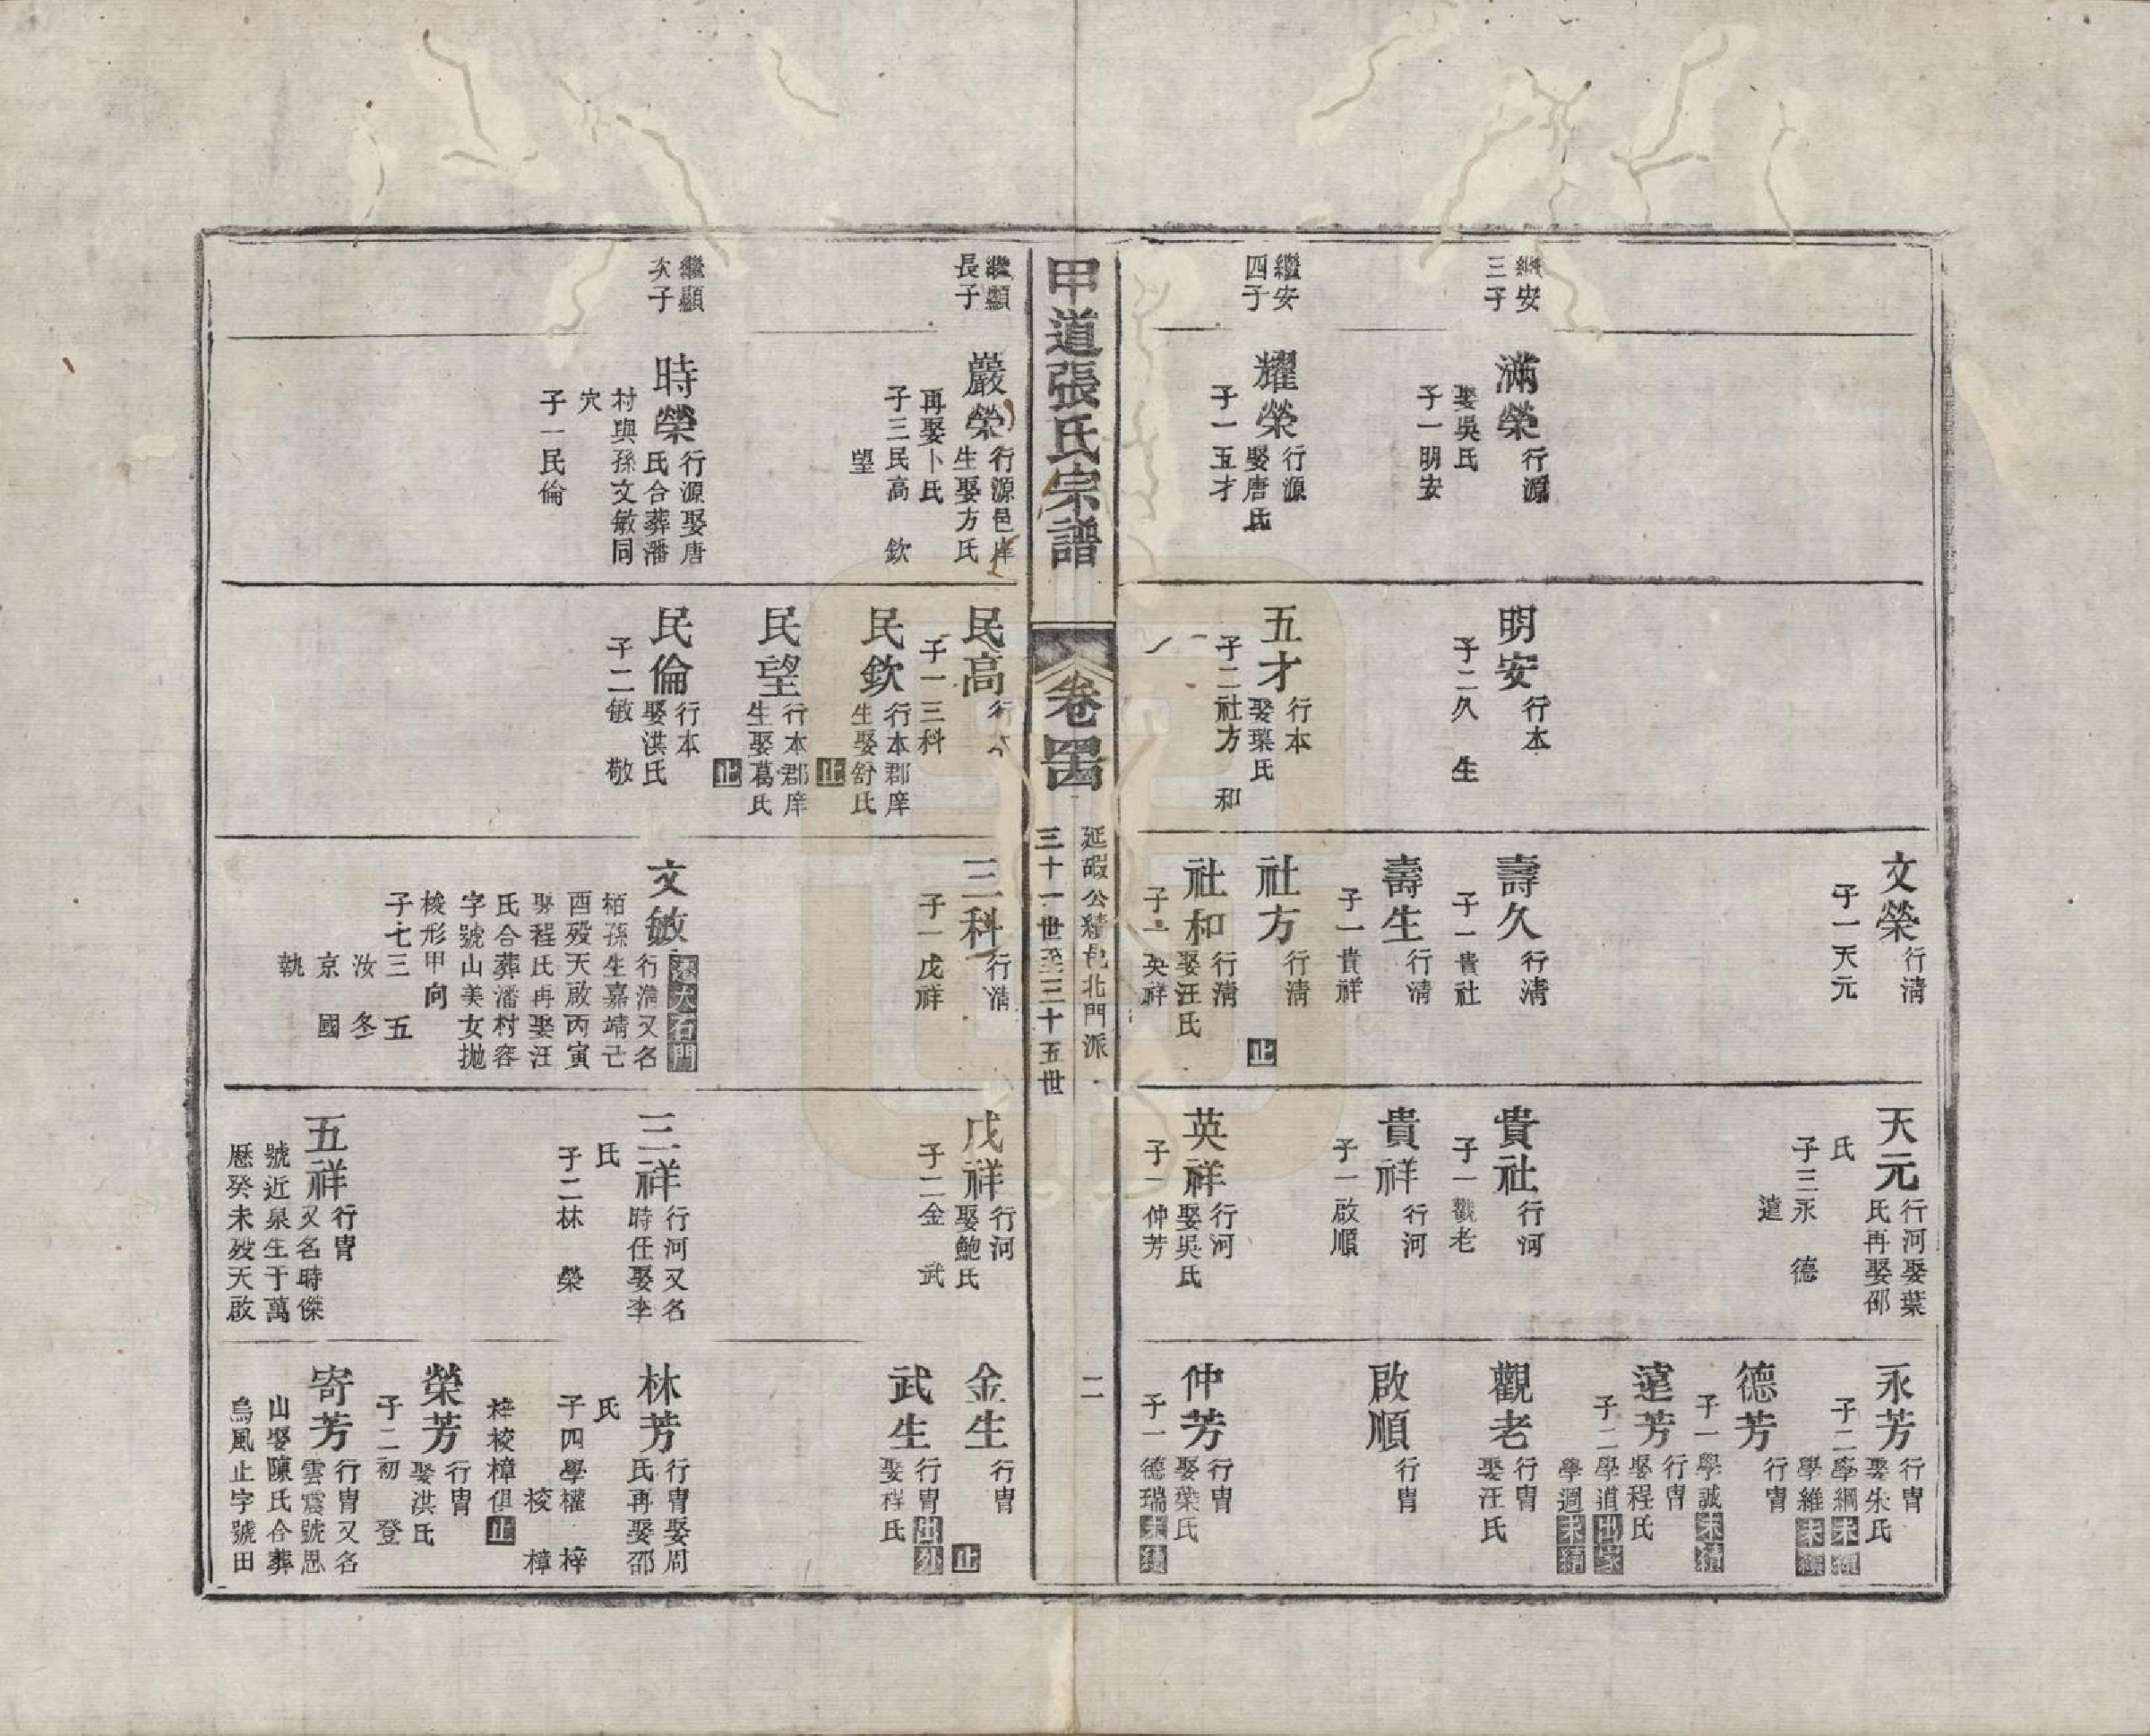 繼安
三子
滿榮
行源
娶吳氏
子一明安
繼安
四子
耀榮
行源
娶唐氏
子一五才
明安
行本
子二久 生
五才
行本
娶葉氏
子二社方 和
文榮
行淸
子一天元
壽久
行淸
子一貴社
壽生
行淸
子一貴祥
社方
行淸
止
社和
行淸
娶汪氏
子一英祥
天元
行河娶葉
氏再娶邵
氏
子三永 德
遠
貴社
行河
子一觀老
貴祥
行河
子一啟順
英祥
行河
娶吳氏
子一仲芳
永芳
行冑
娶朱氏
子二學綱未續
學維未續
德芳
行冑
子一學誠未續
遠芳
行冑
娶程氏
子二學道出家
學週未續
觀老
行冑
娶汪氏
啟順
行冑
仲芳
行冑
娶葉氏
子一德瑞未續
甲道張氏宗譜
卷
延嘏公績邑北門派
三十一世至三十五世
二
繼顯
長子
巖榮
行源邑庠
生娶方氏
再娶卜氏
子三民高 欽
望
繼顯
次子
時榮
行源娶唐
氏合葬潘
村與孫文敏同
穴
子一民倫
民高
行本
子一三科
民欽
行本郡庠
生娶舒氏
止
民望
行本郡庠
生娶葛氏
止
民倫
行本
娶洪氏
子二敏 敬
三科
行淸
子一戊祥
文敏
遷大石門
行淸又名
栢孫生嘉靖己
酉歿天啟丙寅
娶程氏再娶汪
氏合葬潘村容
字號山美女拋
梭形甲向
子七三 五
汝 冬
京 國
執
戊祥
行河
娶鮑氏
子二金 武
三祥
行河又名
時任娶李
氏
子二林 榮
五祥
行冑
又名時傑
號近泉生于萬
歷癸未歿天啟
金生
行冑
止
武生
行冑出外
娶程氏
林芳
行冑娶周
氏再娶邵
氏
子四學權 梓
棱 樟
梓棱樟俱止
榮芳
行冑
娶洪氏
子二初 登
寄芳
行冑又名
雲震號思
山娶陳氏合葬
烏風止字號田